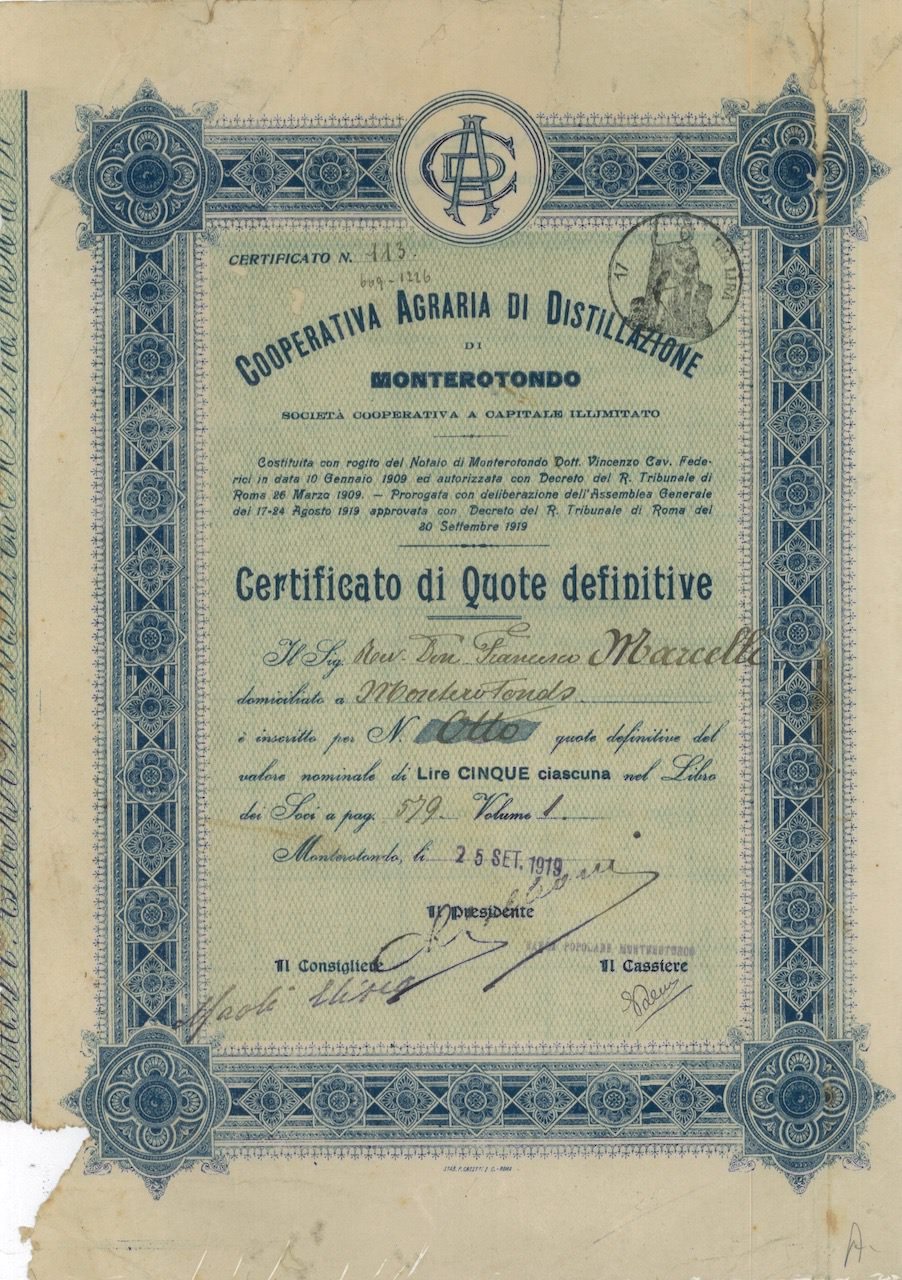 CAD
CERTIFICATO N. 113.
609-1226
17 UNA LIRA
COOPERATIVA AGRARIA DI DISTILLAZIONE
DI
MONTEROTONDO
SOCIETÀ COOPERATIVA A CAPITALE ILLIMITATO
Costituita con rogito del Notaio di Monterotondo Dott. Vincenzo Cav. Fede-
rici in data 10 Gennaio 1909 ed autorizzata con Decreto del R. Tribunale di
Roma 26 Marzo 1909. — Prorogata con deliberazione dell'Assemblea Generale
del 17-24 Agosto 1919 approvata con Decreto del R. Tribunale di Roma del
20 Settembre 1919
Certificato di Quote definitive
Il Sig. Rev. Don Francesco Marcelli
domiciliato a Monterotondo
è inscritto per N. Otto quote definitive del
valore nominale di Lire CINQUE ciascuna nel Libro
dei Soci a pag. 579 Volume 1
Monterotondo, li 25 SET. 1919
Il Presidente
POPOLARE MONTEROTONDO
Il Consigliere Il Cassiere